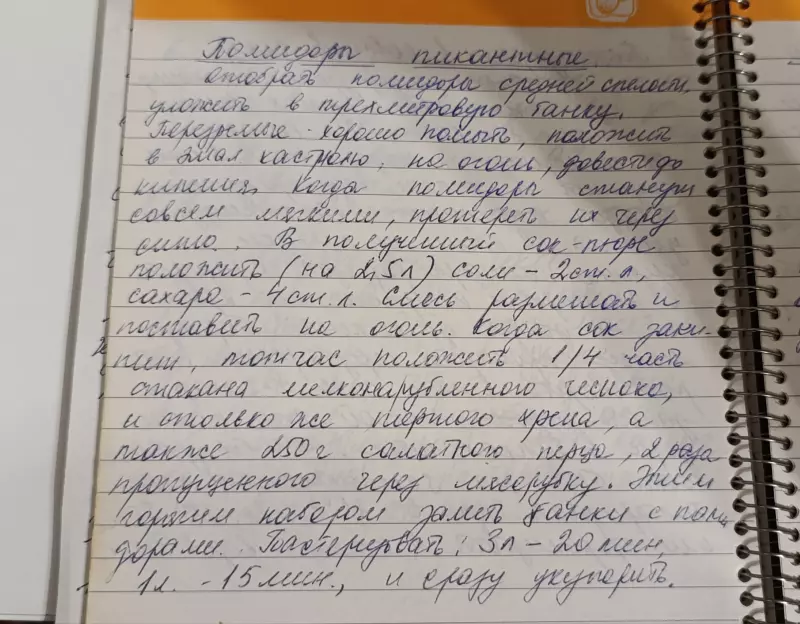 Помидоры пикантные
отобрать помидоры средней спелости,
уложить в трехлитровую банку.
Перезрелые хорошо помыть, положить
в эмал кастрюлю, на огонь, довести до
кипения. Когда помидоры станут
совсем мягкими, протереть их через
сито. В полученный сок-пюре
положить (на 2,5л) соли - 2ст.л,
сахара - 4ст.л. Смесь размешать и
поставить на огонь. Когда сок заки-
пит, тотчас положить 1/4 часть
стакана мелконарубленного чеснока,
и столько же тертого хрена, а
также 250г салатного перца, 2 раза
пропущенного через мясорубку. Этим
горячим набором залить банки с поми
дорами. Пастеризовать: 3л - 20 мин,
1л. - 15 мин., и сразу укупорить.